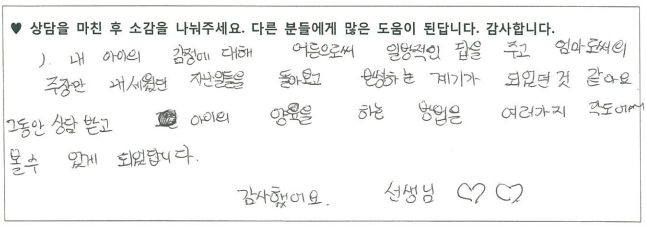 ♥ 상담을 마친 후 소감을 나눠주세요. 다른 분들에게 많은 도움이 된답니다. 감사합니다.
). 내 아이의 감정에 대해 어른으로써 일방적인 답을 주고 엄마로써의
주장만 내세웠던 지난일들을 돌아보고 반성하는 계기가 되었던 것 같아요
그동안 상담 받고 아이의 양육을 하는 방법을 여러가지 각도에서
볼수 있게 되었답니다.
감사했어요. 선생님 ♡♡